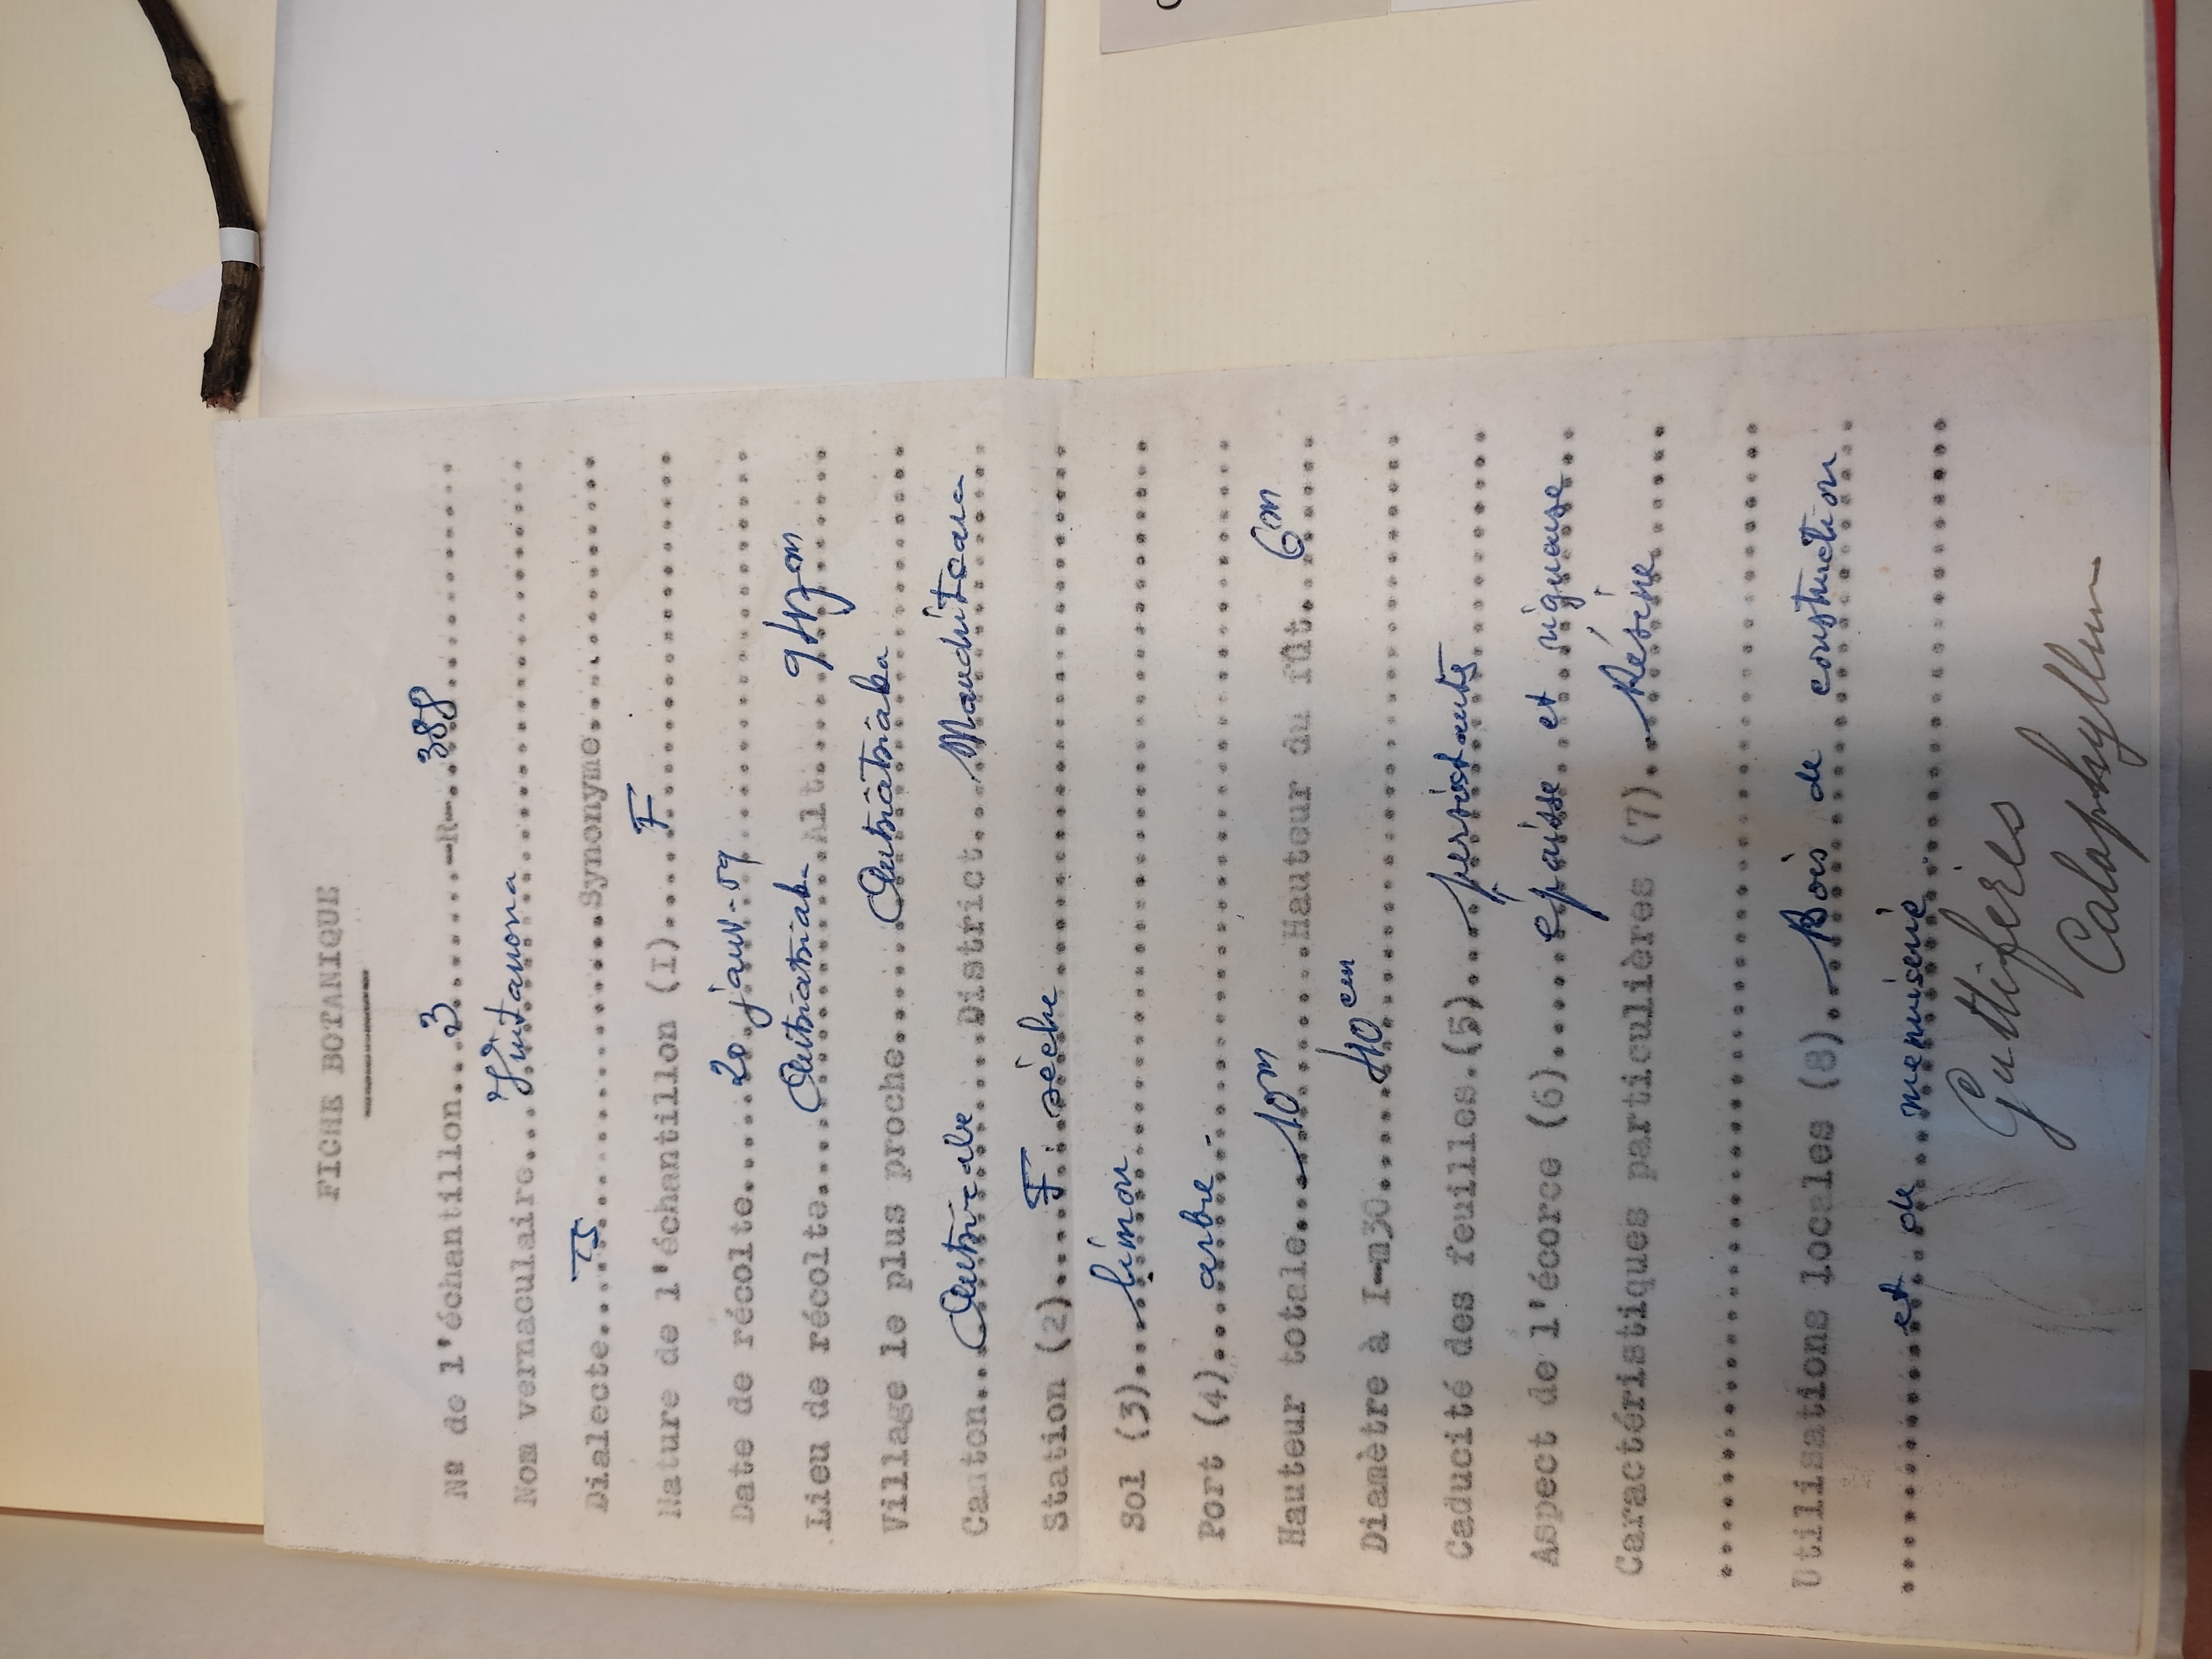 FICHE BOTANIQUE
Nº de l'échantillon...3.......-R-..388
Nom vernaculaire....Vintanona
Dialecte....TS......Synonyme
Nature de l'échantillon (I)....F
Date de récolte.....20 janv-59
Lieu de récolte.....Antsiatsiaka...Alt....
Village le plus proche.....Antsiatsiaka
Canton...District....Mandritsara
Station (2).....F. sèche
Sol (3)...limon
Port (4)....arbre
Hauteur totale....10m......Hauteur du fût...6m
Diamètre à I-m30......40 cm
Caducité des feuilles.(5)...persistants
Aspect de l'écorce (6).....épaisse et rigueuse
Caractéristiques particulières (7)...Résine
Utilisations locales (8)...Bois de construction
et de menuiserie
Guttifères
Calophyllum